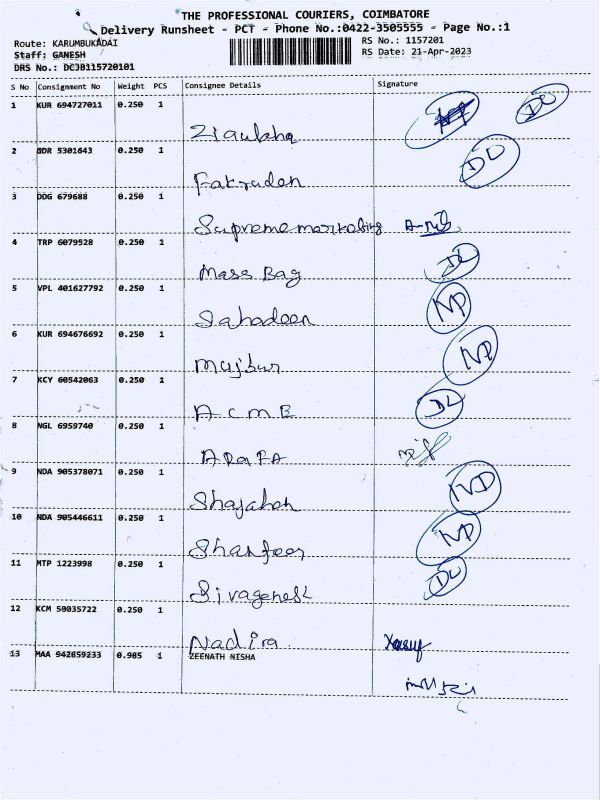 THE PROFESSIONAL COURIERS, COIMBATORE
Delivery Runsheet - PCT - Phone No.:0422-3505555 - Page No.:1
Route: KARUMBUKADAI RS No.: 1157201
Staff: GANESH RS Date: 21-Apr-2023
DRS No.: DCJB115720101
S No Consignment No Weight PCS Consignee Details Signature
1 KUR 694727011 0.250 1 DL
Ziaulhq
2 0.250 1 DL
Fakrudeen
3 DDG 679688 0.250 1
Suprememarketing
4 TRP 6079528 0.250 1 DL
Mass Bag
5 VPL 401627792 0.250 1 ND
Sahadeen
6 KUR 694676692 0.250 1 ND
Mujbur
7 KCY 60542063 0.250 1 DL
ACME
8 NGL 6959740 0.250 1
ARAFA
9 NDA 905378071 0.250 1 ND
Shajahan
10 NDA 905446611 0.250 1 ND
11 MTP 1223998 0.250 1 DL
12 KCM 50035722 0.250 1
Nadira
13 MAA 942859233 0.985 1 ZEENATH NISHA